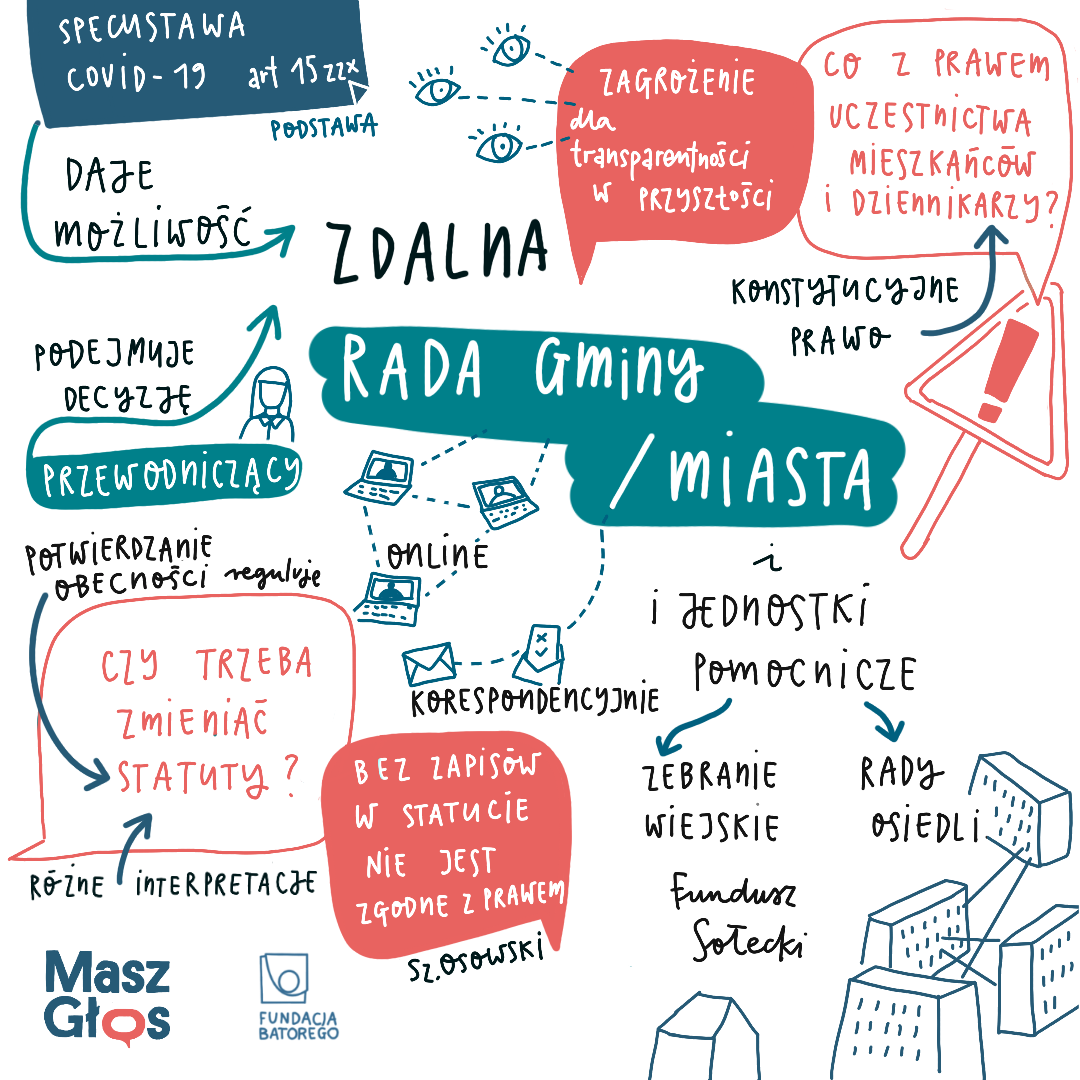 SPECUSTAWA
COVID-19 art 15zzx
PODSTAWA
DAJE
MOŻLIWOŚĆ
ZAGROŻENIE
dla
transparentności
W PRZYSZŁOŚCI
CO Z PRAWEM
UCZESTNICTWA
MIESZKAŃCÓW
I DZIENNIKARZY?
KONSTYTUCYJNE
PRAWO
ZDALNA
RADA Gminy
/MIASTA
PODEJMUJE
DECYZJĘ
PRZEWODNICZĄCY
ONLINE
KORESPONDENCYJNIE
POTWIERDZANIE
OBECNOŚCI reguluje
CZY TRZEBA
ZMIENIAĆ
STATUTY?
RÓŻNE INTERPRETACJE
BEZ ZAPISÓW
W STATUCIE
NIE JEST
ZGODNE Z PRAWEM
SZ.OSOWSKI
i
i JEDNOSTKI
POMOCNICZE
ZEBRANIE
WIEJSKIE
Fundusz
Sołecki
RADY
OSIEDLI
Masz
Głos
FUNDACJA
BATOREGO